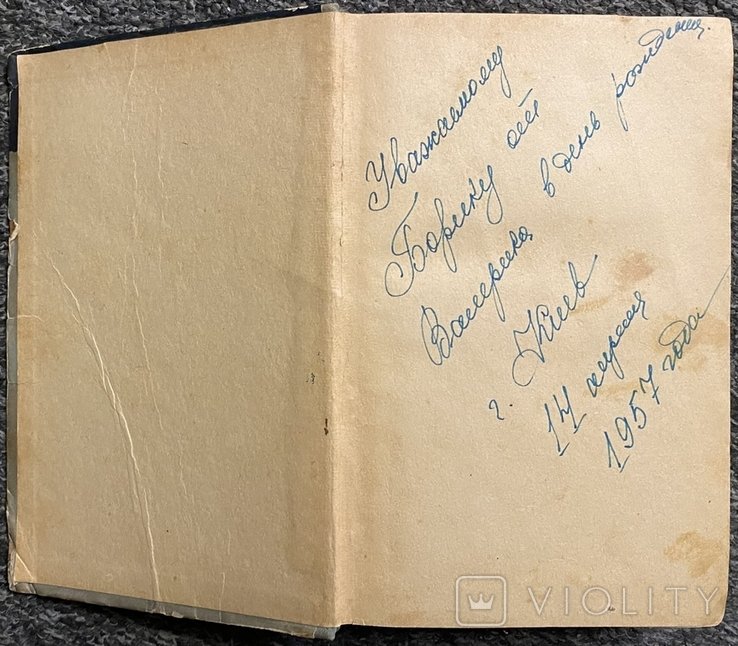 Уважаемому
Борику от
Валерика в день рождения.
г. Киев
14 апреля
1957 года
VIOLITY